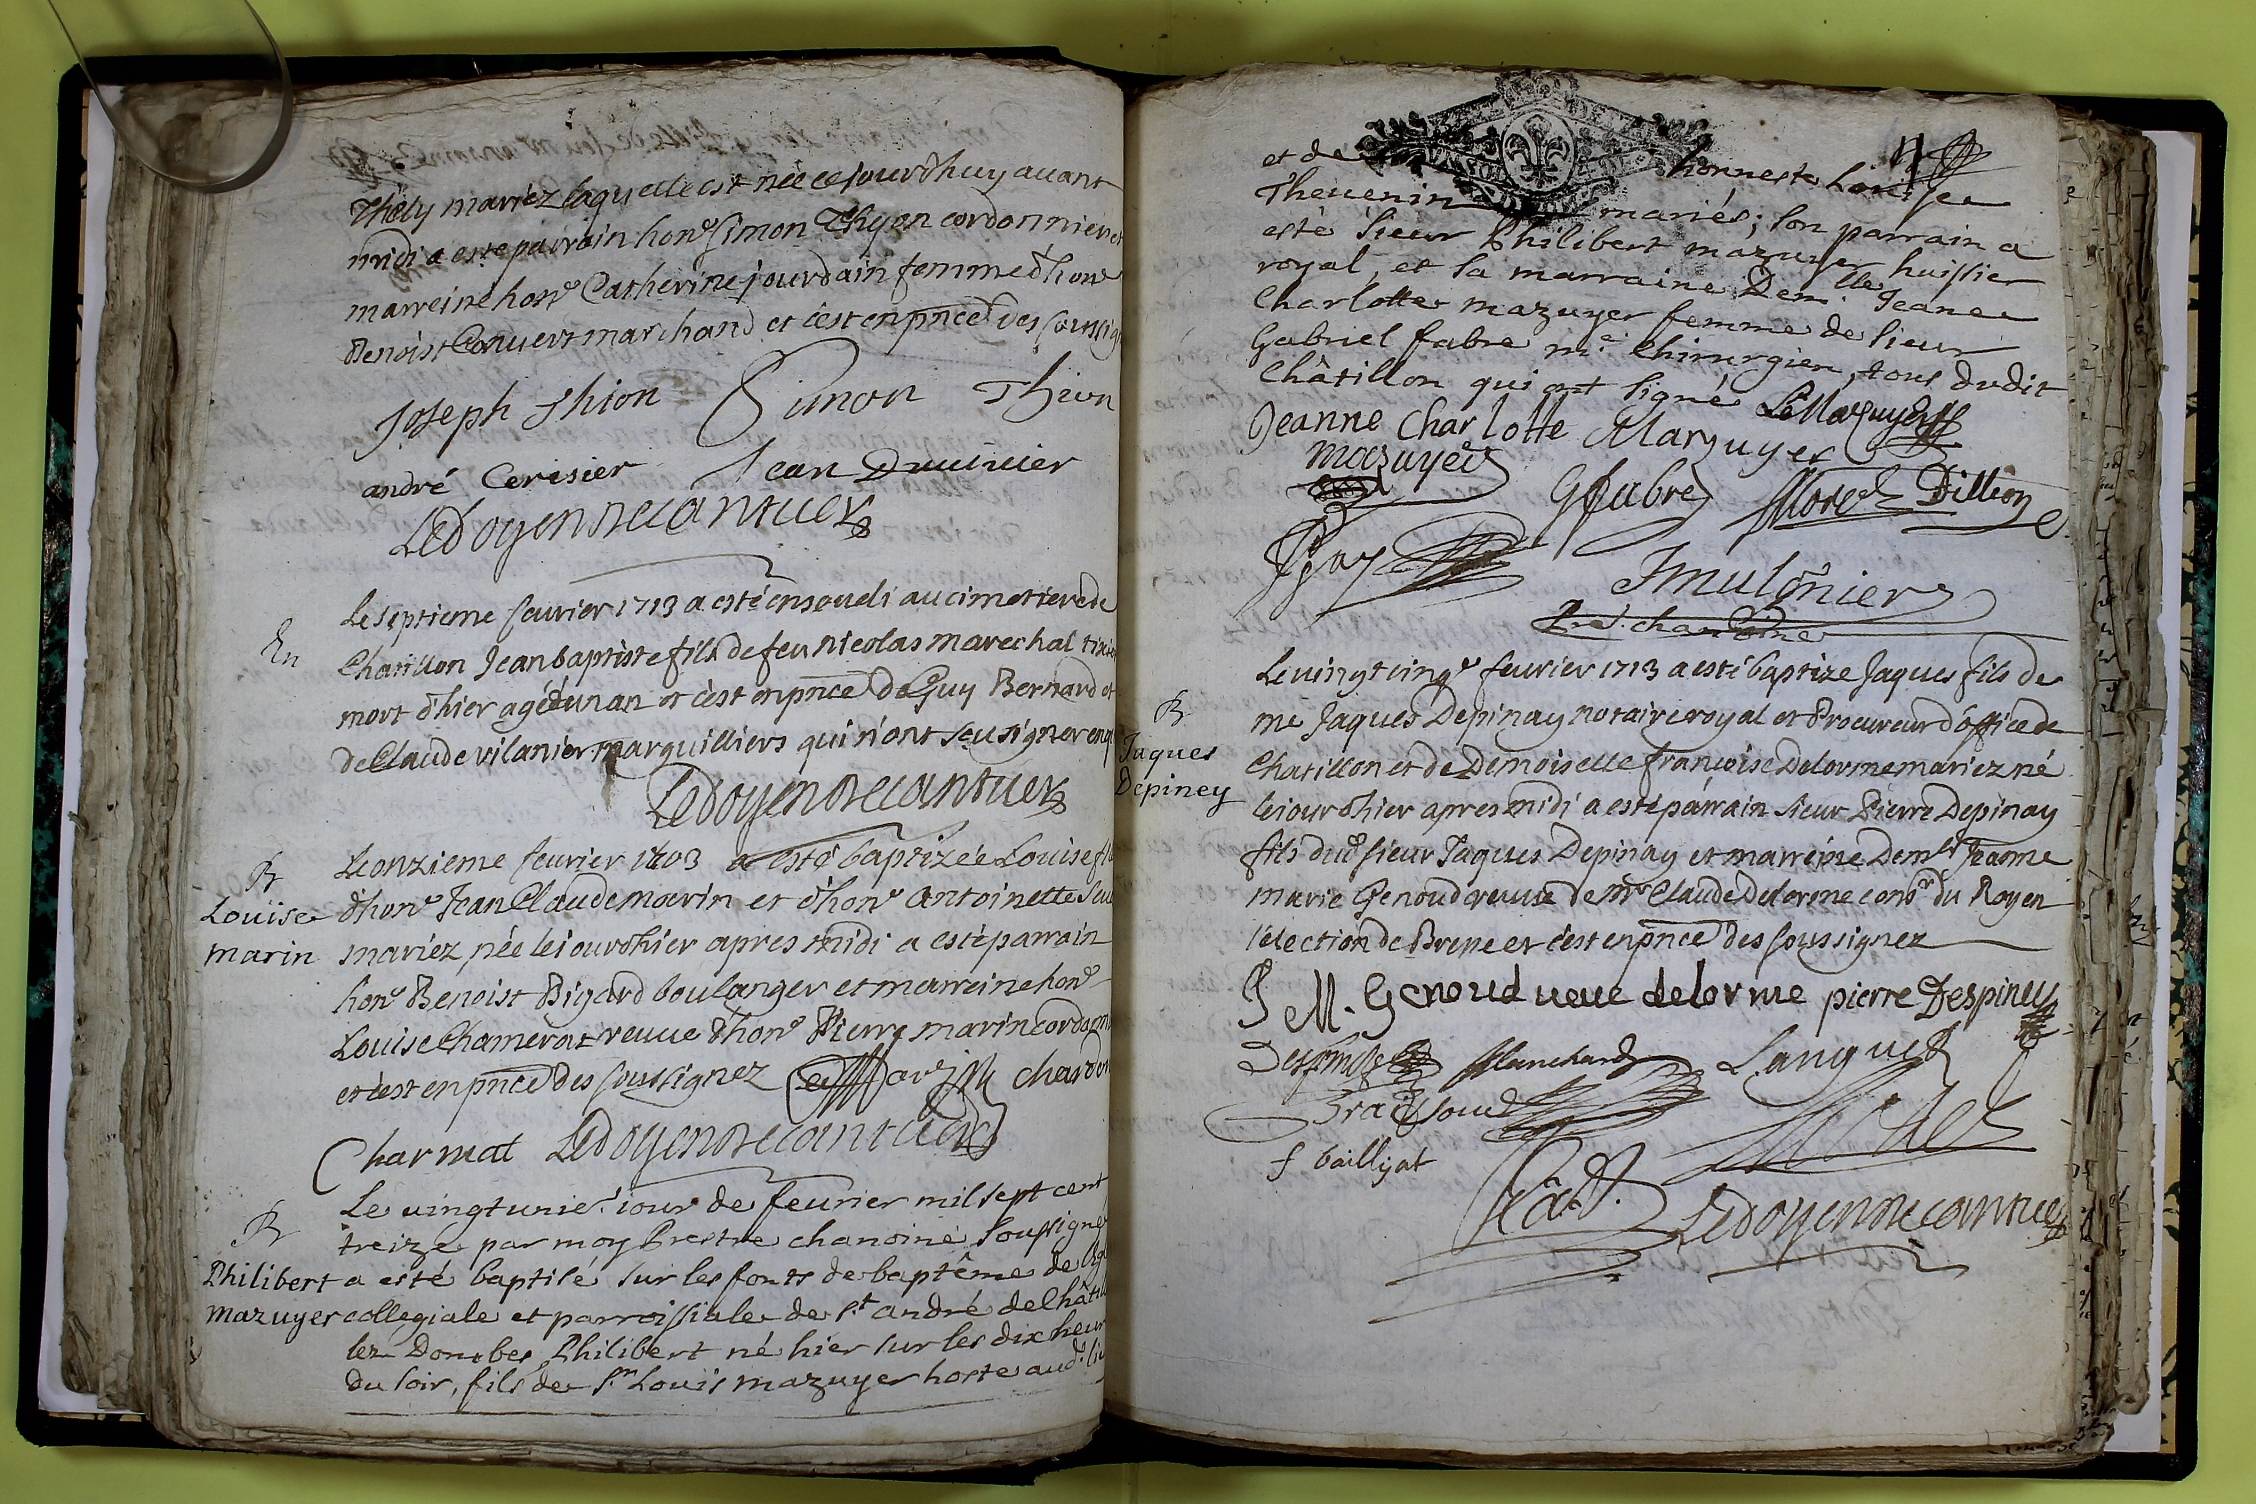 Thely mariez laquelle est née ce jourd'huy avant
midi a esté parrain hon.e Simon Thyon cordonnier et
marreine hon.e Catherine jourdain femme d'hon.e
Benoist Convert marchand et c'est en pnce des soussig
Joseph Thion Simon Thion
andré Cerisier Jean
Ledoyen De cantuer
En
Le septieme fevrier 1713 a esté ensoveli au cimettiere de
Chatillon Jean baptiste fils de feu nicolas marechal
mort d'hier agé d'un an et c'est en pnce de Guy Bernard et
de Claude vilanier marguilliers qui n'ont seu signer enq
Ledoyen De cantuer
B
Louise
marin
Le onzieme fevrier 1703 a esté baptizée Louise fi
d'hon.e Jean Claude marin et d'hon.e antoinette
mariez née le jour d'hier apres midi a esté parrain
hon.e Benoist Bigard boulanger et marreine hon.e
Louise Chamerat veuve d'hon.e Pierre marin cordonn
et c'est en pnce des soussignez chardon
Charmat Ledoyen De cantuer
B
Philibert
mazuyer
Le vingtunie. iour de feurier mil sept cent
treize par moy Prestre chanoine soussigné
a esté baptisé sur les fonts de baptême de
collegiale et parroissiale de s.t andré de Châti
lez Dombes Philibert né hier sur les dix heur
du soir, fils de s.r Louis mazuyer hoste aud. li
et de honneste Louise
Thevenin mariés; son parrain a
esté sieur Philibert mazuyer huissier
royal, et la marraine Dem.lle Jeane
Charlotte mazuyer femme de sieur
Gabriel fabre m.e Chirurgien, tous dudit
Châtillon qui ont signé LeMazuyer
Jeanne Charlotte Mazuyer
mazuyer
G fabre Morel Dillion
J mulonier
chanoine
B
Jaques
Depiney
Le vingt cinq.e fevrier 1713 a esté baptize Jaques fils de
me Jaques Depinay notaire royal et Procureur d'office de
Chatillon et de Demoiselle françoise Delorme mariez né
le jour d'hier apres midi a esté parrain sieur Pierre Depinay
fils dud sieur Jaques Depinay et marreine Dem.le Jeanne
marie Genoud veuve de mr Claude Delorme cons.r du Roy en
l'élection de Bresse et c'est en pnce des soussignez
J M. Genoud veuve delorme pierre Despiney
Blanchard Languet
f baillyat
Ledoyen De cantuer